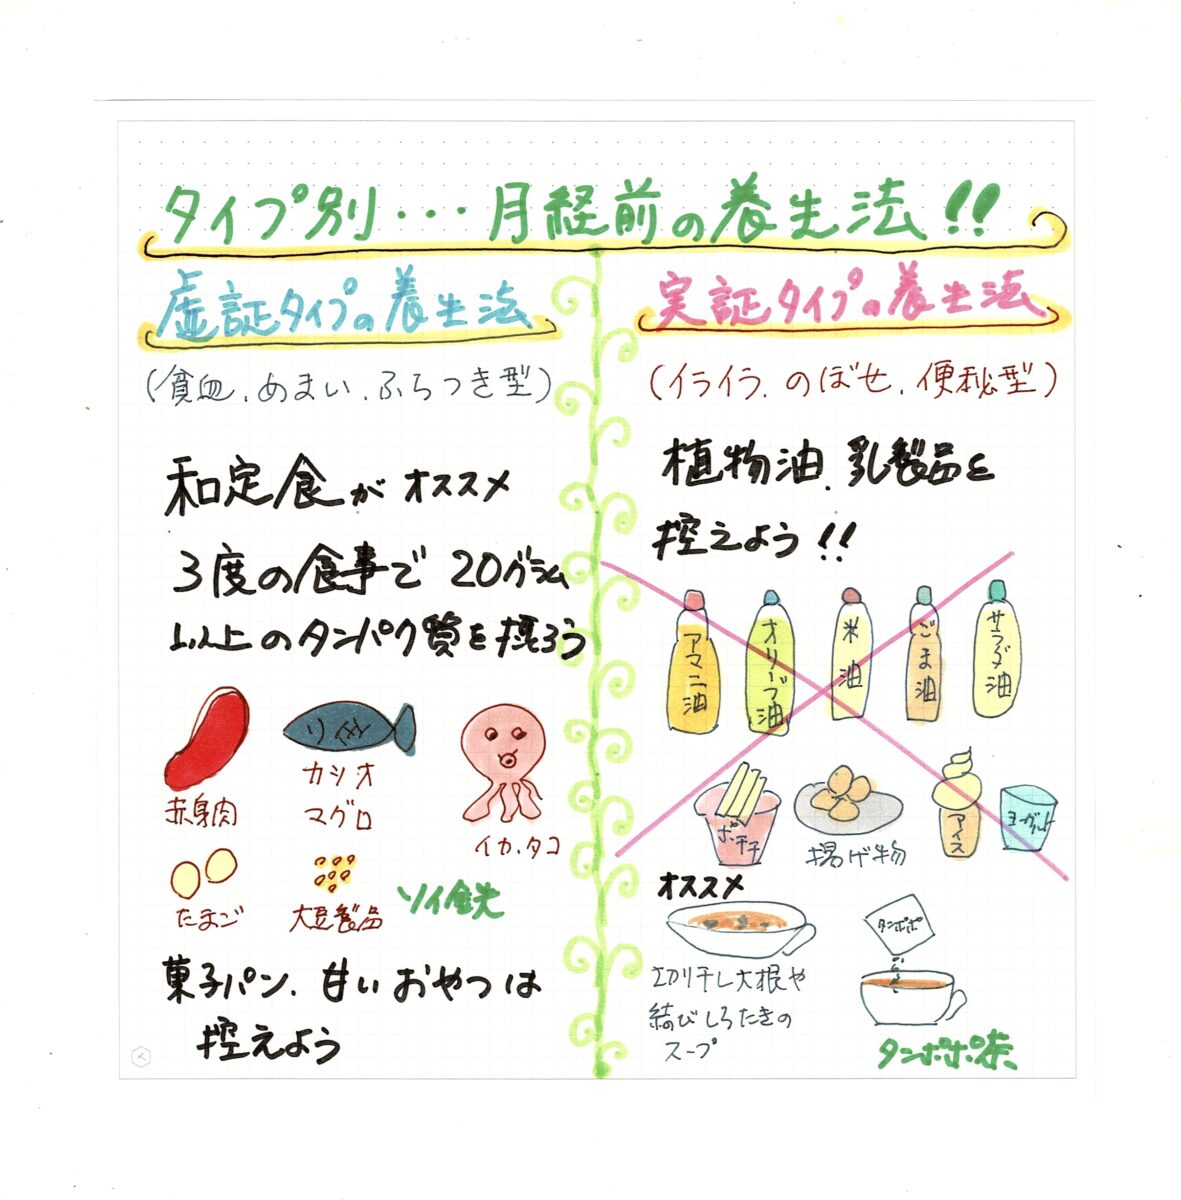 タイプ別・・・月経前の養生法!!
虚証タイプの養生法
(貧血、めまい、ふらつき型)
和定食がオススメ
3度の食事で20グラム
以上のタンパク質を摂ろう
赤身肉
カツオ
マグロ
イカ、タコ
たまご
大豆製品
ソイ鉄
菓子パン、甘いおやつは
控えよう
実証タイプの養生法
(イライラ、のぼせ、便秘型)
植物油、乳製品を
控えよう!!
アマニ油
オリーブ油
米油
ごま油
サラダ油
ポテチ
揚げ物
アイス
ヨーグルト
オススメ
切り干し大根や
結びしらたきの
スープ
タンポポ
タンポポ茶